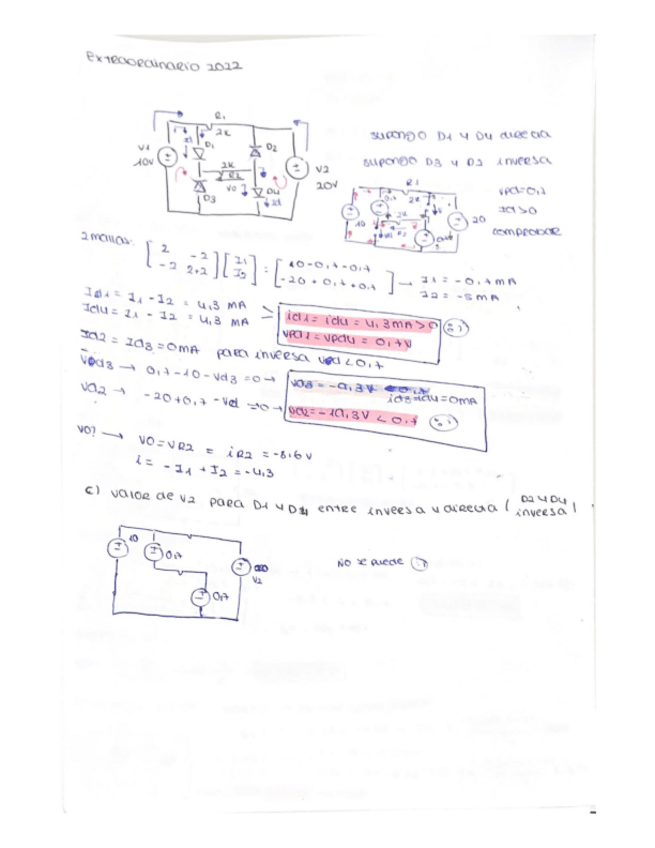 Extraordinario 2022
R1
2K
V1
10V
D1
D2
2K
R2
V2
20V
D3
VO
D4
supongo D1 y D4 directa
supongo D3 y D2 inversa
VPD=0,7
Id>0
comprobar
2 mallas: [2 -2 / -2 2+2] [I1 / I2] = [10-0,7-0,7 / -20+0,7+0,7] → I1 = -0,7mA
I2 = -5mA
Id1 = I1 - I2 = 4,3 mA
Id4 = I1 - I2 = 4,3 mA
id1 = id4 = 4,3mA > 0
VPd1 = VPd4 = 0,7V
Id2 = Id3 = 0mA para inversa Vd < 0,7
Vd3 → 0,7-10-Vd3 = 0 →
Vd2 → -20+0,7-Vd =0 →
Vd2 = -19,3V < 0,7
VO? → VO = VR2 = iR2 = -8,6V
i = -I1 + I2 = -4,3
c) Valor de V2 para D1 y D4 entre inversa y directa (D2 y D4 inversa)
10
0,7
V2
0,7
NO se puede :)